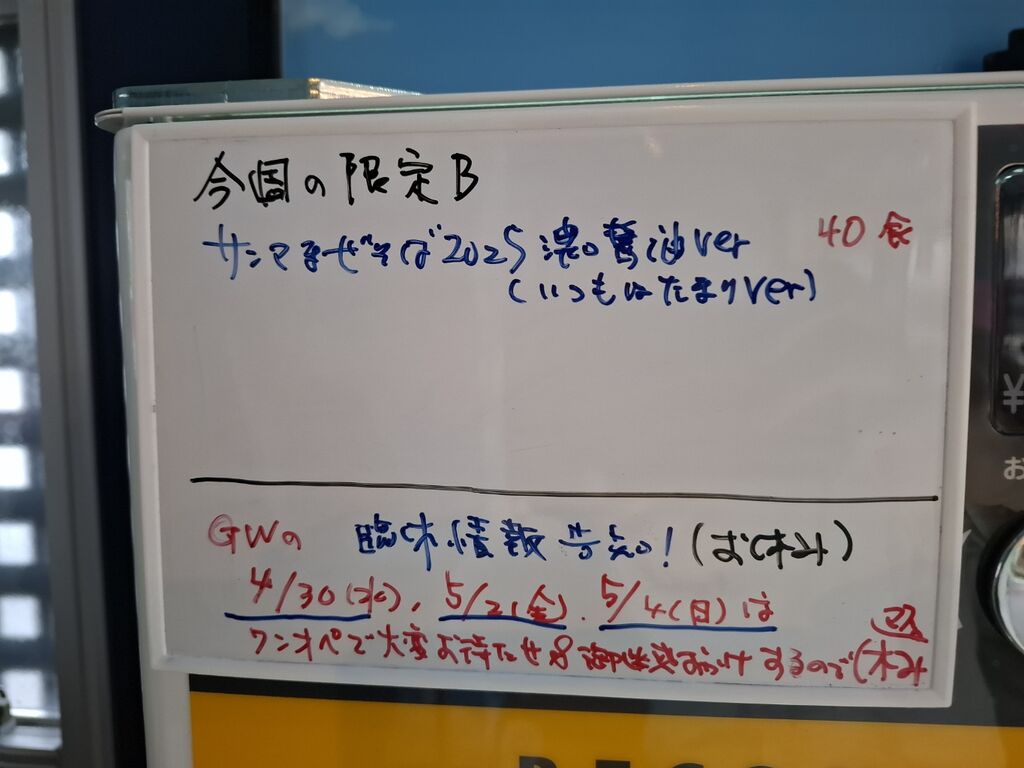 今回の限定B
サンマまぜそば2025濃口醤油ver 40食
(いつもはたまりver)
GWの 臨休情報告知!(お休み)
4/30(水)、5/2(金)、5/4(日)は
ワンオペで大変お待たせ&御迷惑おかけするので休み
¥
お